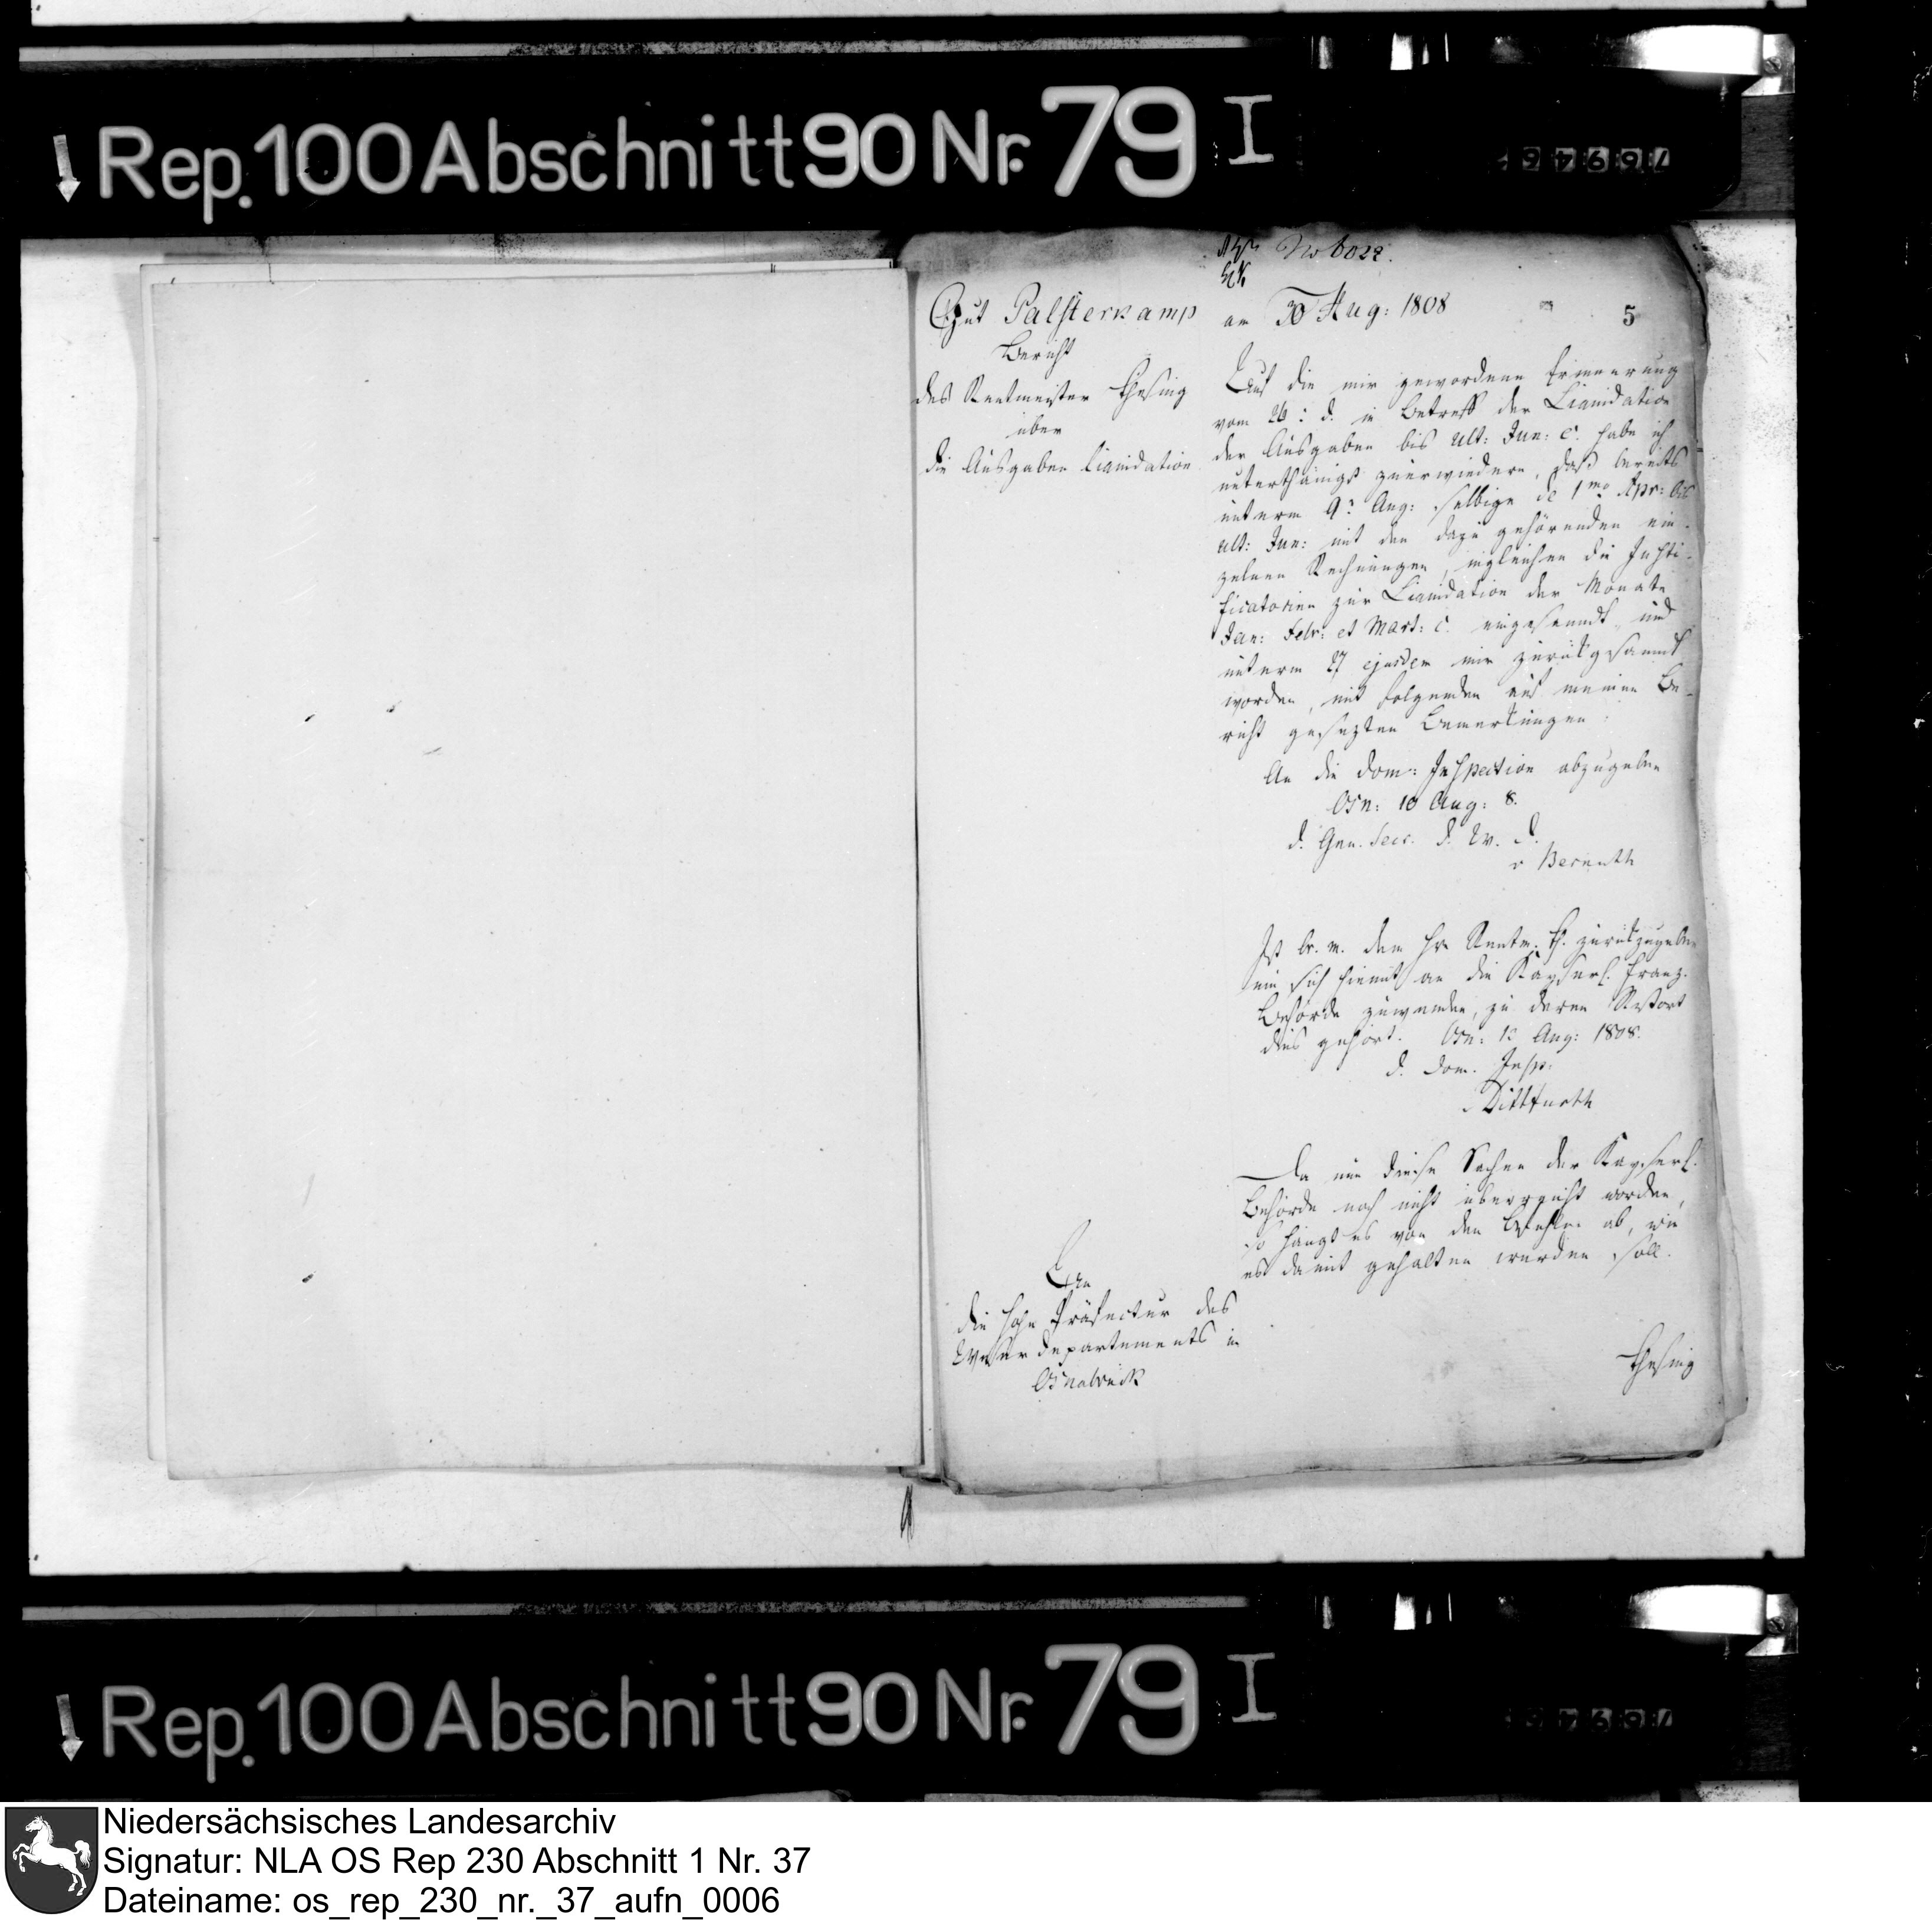 Rep. 100 Abschnitt 90 Nr. 79 I
No 6022.
Gut Palsterkamp
Bericht
des Rentmeister Thesing
über
die Ausgaben Liquidation
am 30 Aug: 1808
5
Auf die mir gewordene Erinnerung
vom 26: d. in Betreff der Liquidation
der Ausgaben bis ult: Jun: c. habe ich
unterthänigst zu erwiedern, daß bereits
unterm 9: Aug: selbige de 1mo Apr: bis
ult: Jun: mit den dazu gehörenden ein-
zelnen Rechnungen, ingleichen die Justi-
ficatorien zur Liquidation der Monate
Jan: Febr: et Mart: c. eingesandt, und
unterm 27 ejusdem mir zurükgesandt
worden, mit folgenden auf meinen Be-
richt gesezten Bemerkungen:
An die Dom: Inspection abzugeben
Osn: 10 Aug: 8.
d. Gen. Secr. d. W. D.
v Bernuth
Ist br. m. dem Hr. Rentm. Th. zurükzugeben
um sich hiemit an die Kayserl. Franz.
Behörde zu wenden, zu deren Ressort
dies gehört. Osn: Aug: 1808.
d. Dom. Insp.
v Dittfurth
Da nun diese Sachen der Kayserl.
Behörde noch nicht überreicht worden,
so hängt es von den Befehlen ab, wie
es damit gehalten werden soll.
An
die hohe Präfectur des
Weser Departements in
Osnabrück
Thesing
Rep. 100 Abschnitt 90 Nr. 79 I
Niedersächsisches Landesarchiv
Signatur: NLA OS Rep 230 Abschnitt 1 Nr. 37
Dateiname: os_rep_230_nr._37_aufn_0006